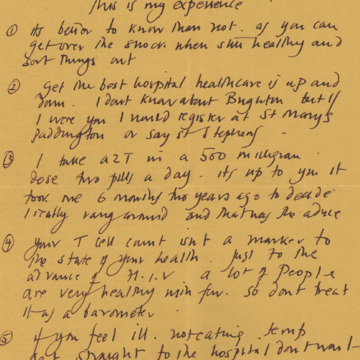 This is my experience
① its better to know than not. as you can
get over the shock when still healthy and
sort things out
② Get the best hospital healthcare is up and
down. I dont know about Brighton but if
I were you I would register at St Marys
Paddington or say St Stephens
③ I take AZT in a 500 milligran
dose two pills a day. its up to you it
took me 6 months two years ago to decide
I really rang around and that was the advice
④ your T cell count isnt a marker to
the state of your health. just to the
advance of H.I.V a lot of people
are very healthy with few. so dont treat
it as a barometer.
⑤ if you feel ill. not eating temp
straight to the hospital dont wait